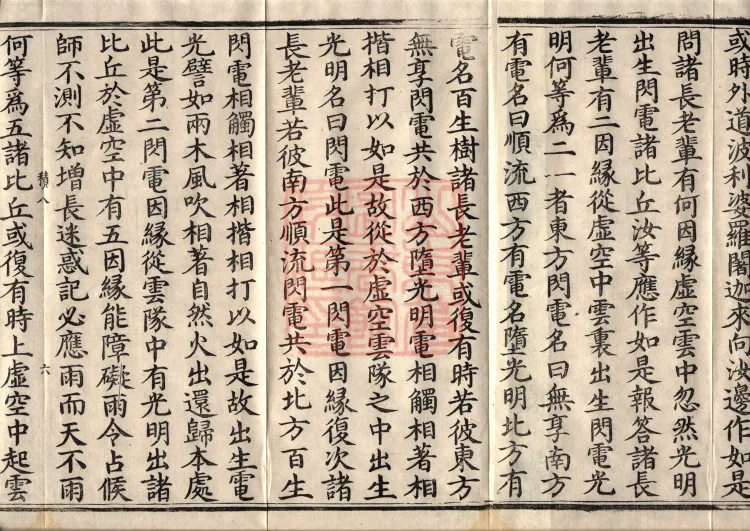 或時外道波利婆羅闍迦來向汝邊作如是
問諸長老輩有何因緣虛空雲中忽然光明
出生閃電諸比丘汝等應作如是報答諸長
老輩有二因緣從虛空中雲裏出生閃電光
明何等爲二一者東方閃電名曰無享南方
有電名曰順流西方有電名墮光明北方有
電名百生樹諸長老輩或復有時若彼東方
無享閃電共於西方墮光明電相觸相著相
揩相打以如是故從於虛空雲隊之中出生
光明名曰閃電此是第一閃電因緣復次諸
長老輩若彼南方順流閃電共於北方百生
閃電相觸相著相揩相打以如是故出生電
光譬如兩木風吹相著自然火出還歸本處
此是第二閃電因緣從雲隊中有光明出諸
比丘於虛空中有五因緣能障礙雨令占候
師不測不知增長迷惑記必應雨而天不雨
積八 六
何等爲五諸比丘或復有時上虛空中起雲